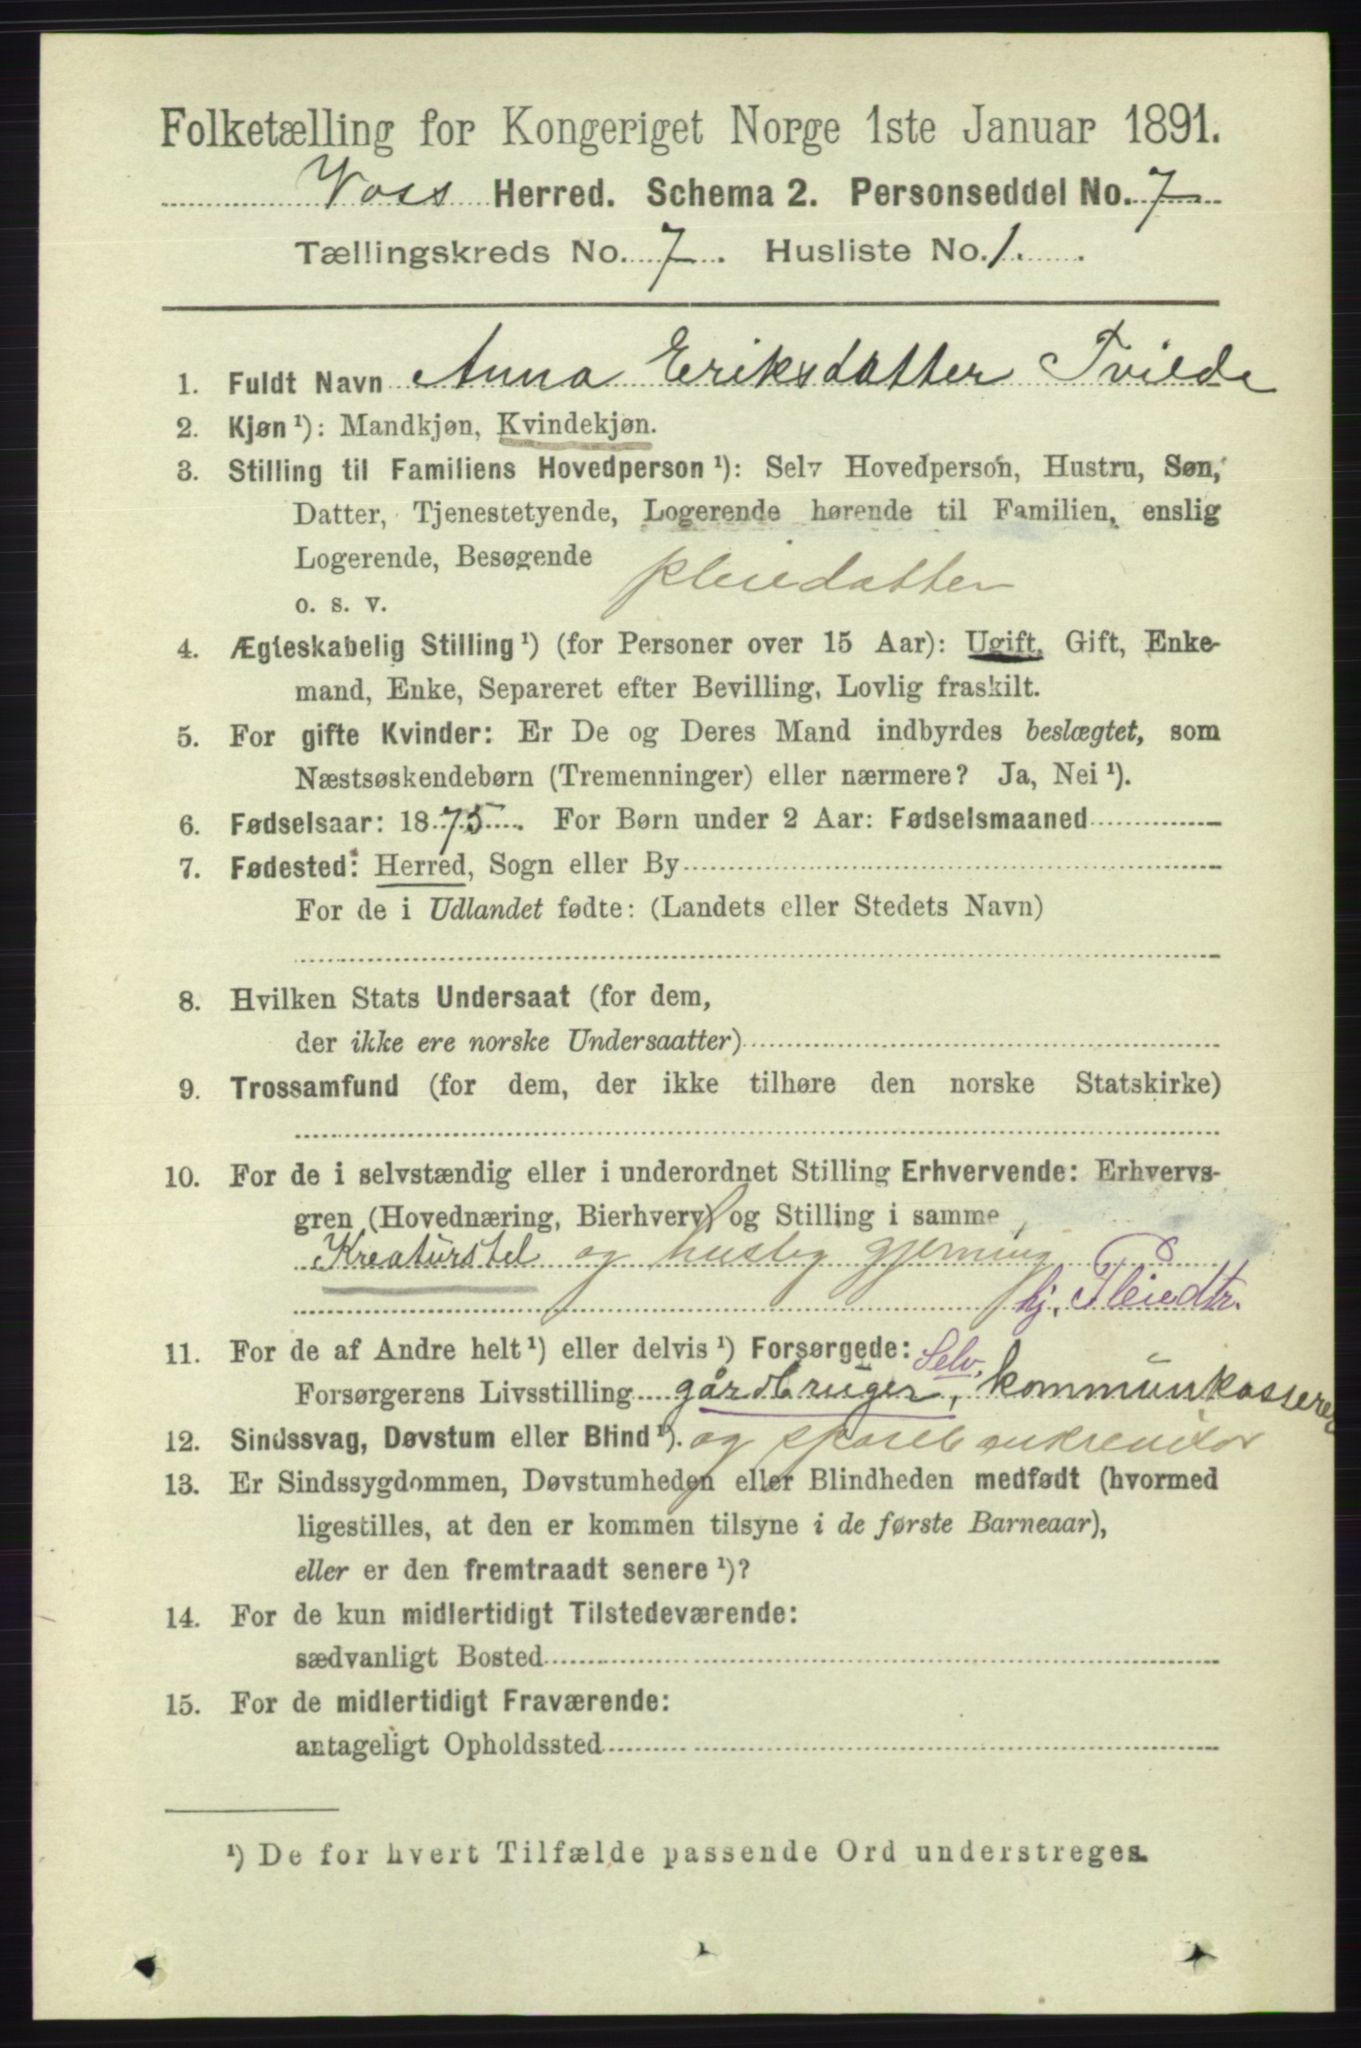 Folketælling for Kongeriget Norge 1ste Januar 1891.
Voss Herred. Schema 2. Personseddel No. 7
Tællingskreds No. 7. Husliste No. 1.
1. Fuldt Navn Anna Eriksdatter Tvilde
2. Kjøn ¹): Mandkjøn, Kvindekjøn.
3. Stilling til Familiens Hovedperson ¹): Selv Hovedperson, Hustru, Søn,
Datter, Tjenestetyende, Logerende hørende til Familien, enslig
Logerende, Besøgende
o. s. v.
pleiedatter
4. Ægteskabelig Stilling ¹) (for Personer over 15 Aar): Ugift, Gift, Enke-
mand, Enke, Separeret efter Bevilling, Lovlig fraskilt.
5. For gifte Kvinder: Er De og Deres Mand indbyrdes beslægtet, som
Næstsøskendebørn (Tremenninger) eller nærmere? Ja, Nei ¹).
6. Fødselsaar: 1875. For Børn under 2 Aar: Fødselsmaaned
7. Fødested: Herred, Sogn eller By
For de i Udlandet fødte: (Landets eller Stedets Navn)
8. Hvilken Stats Undersaat (for dem,
der ikke ere norske Undersaatter)
9. Trossamfund (for dem, der ikke tilhøre den norske Statskirke)
10. For de i selvstændig eller i underordnet Stilling Erhvervende: Erhvervs-
gren (Hovednæring, Bierhverv) og Stilling i samme
Kreaturstel og huslig gjerning
hj. Pleiedtr.
11. For de af Andre helt ¹) eller delvis ¹) Forsørgede: Selv.
Forsørgerens Livsstilling gårdbruger, kommunkasserer
12. Sindssvag, Døvstum eller Blind ¹). og sparebankrevisor
13. Er Sindssygdommen, Døvstumheden eller Blindheden medfødt (hvormed
ligestilles, at den er kommen tilsyne i de første Barneaar),
eller er den fremtraadt senere ¹)?
14. For de kun midlertidigt Tilstedeværende:
sædvanligt Bosted
15. For de midlertidigt Fraværende:
antageligt Opholdssted
¹) De for hvert Tilfælde passende Ord understreges.